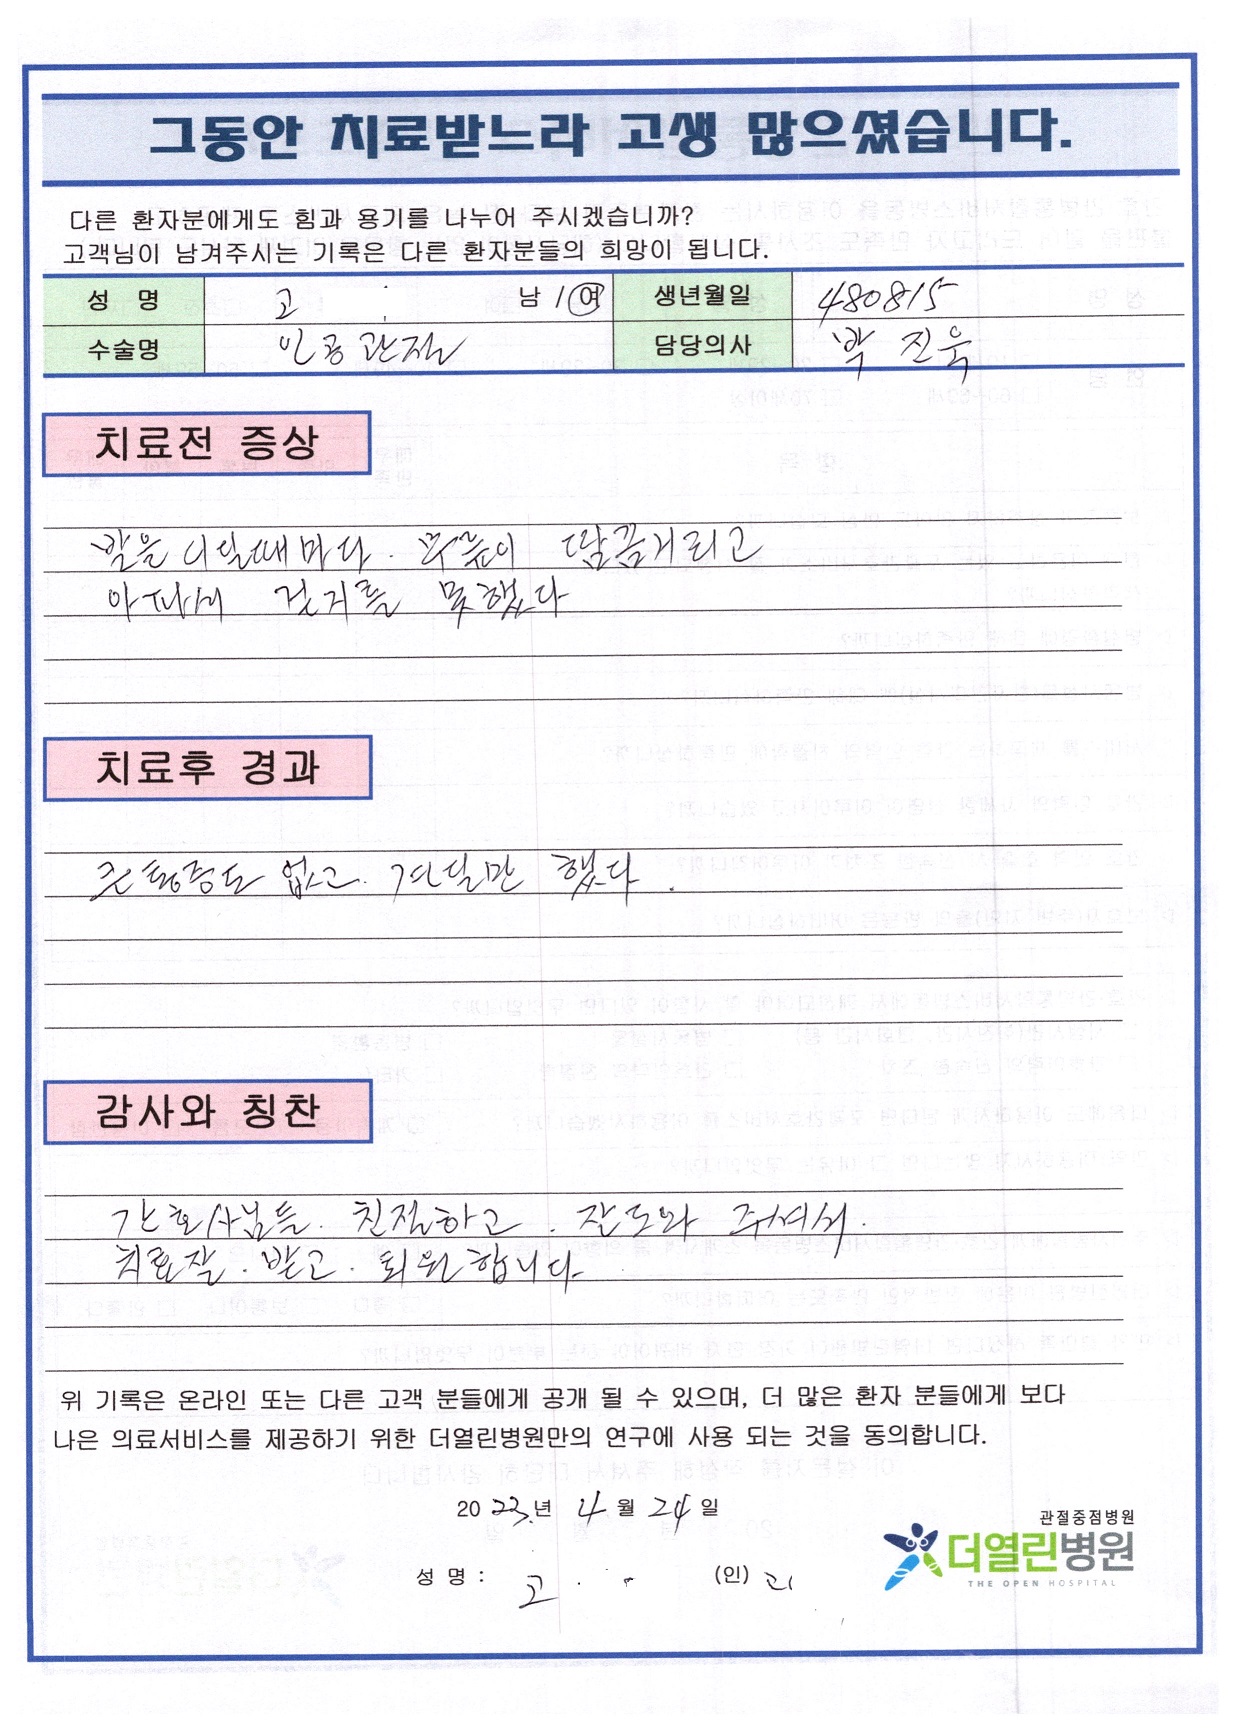 그동안 치료받느라 고생 많으셨습니다.
다른 환자분에게도 힘과 용기를 나누어 주시겠습니까?
고객님이 남겨주시는 기록은 다른 환자분들의 희망이 됩니다.
성 명 고 남 / 여 생년월일 480815
수술명 인공관절 담당의사 박진욱
치료전 증상
발을 디딜때마다. 무릎이 뜨끔거리고
아파서 걷지를 못했다
치료후 경과
큰 통증도 없고. 견딜만 했다.
감사와 칭찬
간호사님들. 친절하고. 잔도와 주셔서.
치료잘. 받고. 퇴원합니다
위 기록은 온라인 또는 다른 고객 분들에게 공개 될 수 있으며, 더 많은 환자 분들에게 보다
나은 의료서비스를 제공하기 위한 더열린병원만의 연구에 사용 되는 것을 동의합니다.
2023.년 4월 24일
성 명 : 고 (인)
관절중점병원
더열린병원
THE OPEN HOSPITAL